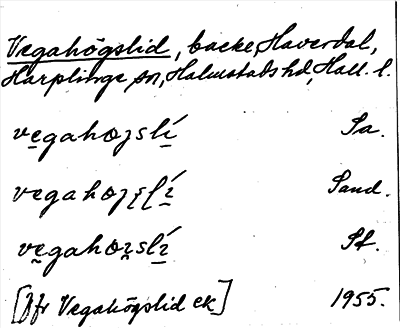 Vegahögslid, backe, Haverdal,
Harplinge sn, Halmstads hd, Hall. l.
vegahoʒslí Sa.
vegahoʒslí Sand.
vegahoʒslí Sf.
[Jfr Vegahögslid ek] 1955.